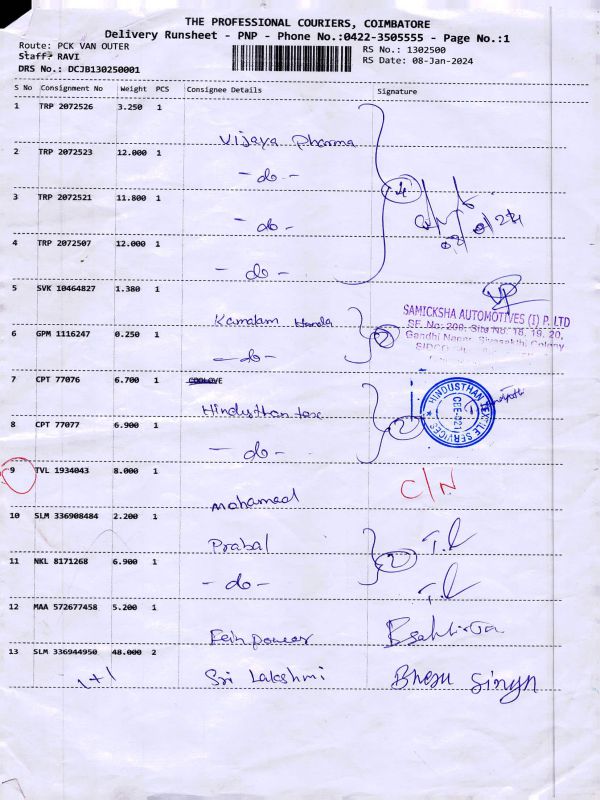 THE PROFESSIONAL COURIERS, COIMBATORE
Delivery Runsheet - PNP - Phone No.:0422-3505555 - Page No.:1
Route: PCK VAN OUTER RS No.: 1302500
Staff: RAVI RS Date: 08-Jan-2024
DRS No.: DCJB130250001
S No Consignment No Weight PCS Consignee Details Signature
1 TRP 2072526 3.250 1
Vijaya Pharma
2 TRP 2072523 12.000 1
- do -
4
3 TRP 2072521 11.800 1
- do -
4 TRP 2072507 12.000 1
- do -
5 SVK 10464827 1.380 1
Kamalam Honda
SAMICKSHA AUTOMOTIVES (I) P. LTD
SF. No: 208, Site No: 18, 19, 20,
6 GPM 1116247 0.250 1
2
Gandhi Nagar, Colony
- do -
7 CPT 77076 6.700 1
Hindusthan tex
HINDUSTHAN TEXTILE SERVICES
CEE-021
8 CPT 77077 6.900 1
2
- do -
9 TVL 1934043 8.000 1
Mohamead C/N
10 SLM 336908484 2.200 1
Prabal
11 NKL 8171268 6.900 1
2
- do -
12 MAA 572677458 5.200 1
13 SLM 336944950 48.000 2
1+1 Sri Lakshmi Singh